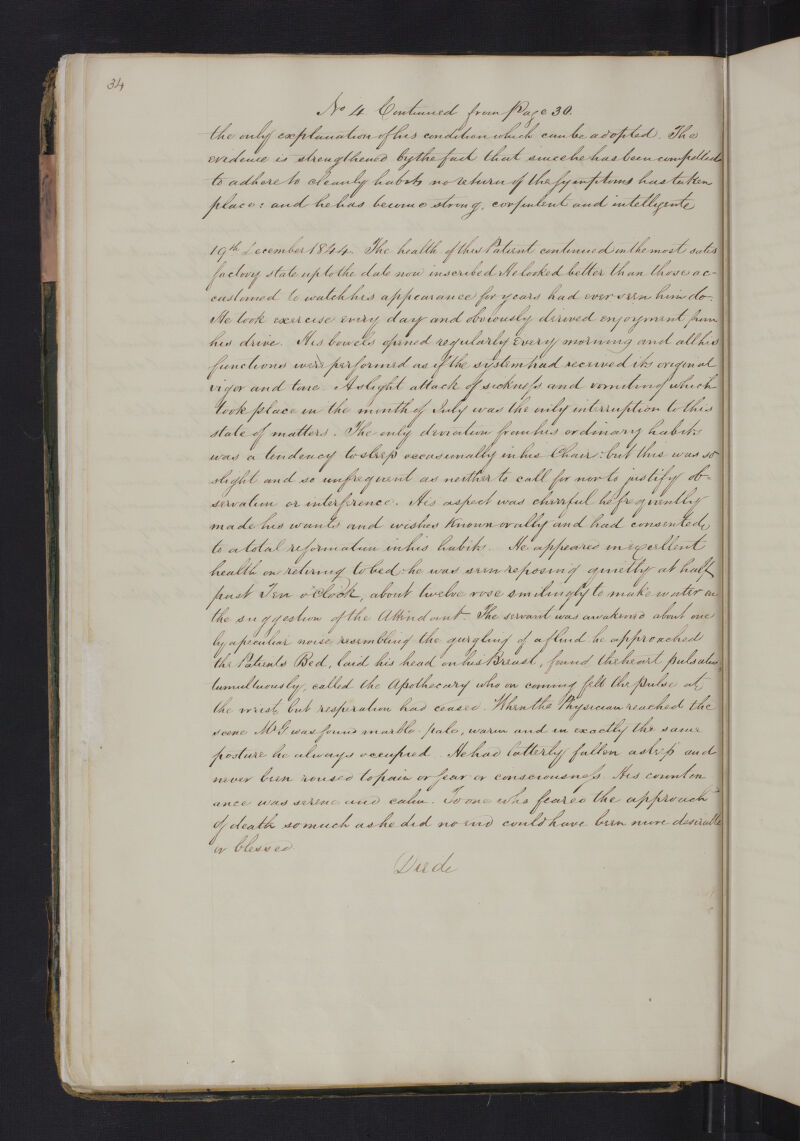 34
No 4 Continued from Page 30.
the only explanation of his condition which can be adopted. The
evidence is strengthened by the fact that since he has been compelled
to adhere to cleanly habits no return of the symptoms has taken
place: and he has become strong, corpulent and intelligente
19th December 1844. The health of this Patient continued in the most satis
factory state up to the date now inscribed He looked better than those ac-
customed to watch his appearance for years had ever seen him do.
He took exercise every day and obviously derived enjoyment from
his drive. His bowels opened regularly every morning and all his
functions were performed as if the system had received its original
vigor and tone. A slight attack of sickness and vomiting which
took place in the month of July was the only interruption to this
state of matters. The only deviation from his ordinary habits
was a tendency to sleep occasionally in his Chair: but this was so
slight and so unfrequent as neither to call for nor to justify ob-
servation or interference. His aspect was cheerful he frequently
made his wants and wishes known orally and had consented
to a total reformation in his habits. He appeared in excellent
health on retiring to bed: he was seen reposing quietly at half
past Ten o'Clock, about twelve rose smilingly to make water on
the suggestion of the Attendant. The servant was awakened about one
by a peculiar noise resembling the gurgling of a fluid he approached
the Patients Bed, laid his head on his Breast, found the heart pulsating
tumultuously, called the Apothecary who on coming felt the pulse at
the wrist, but respiration had ceased. When the Physician reached the
scene Mr G was found marble pale, warm and in exactly the same
posture he always occupied. He had latterly fallen asleep and
never been roused to pain or fear or consciousness. His counten
ance was serene and calm. To one who feared the approach
of death so much as he did no end could have been more desirable
or blessed